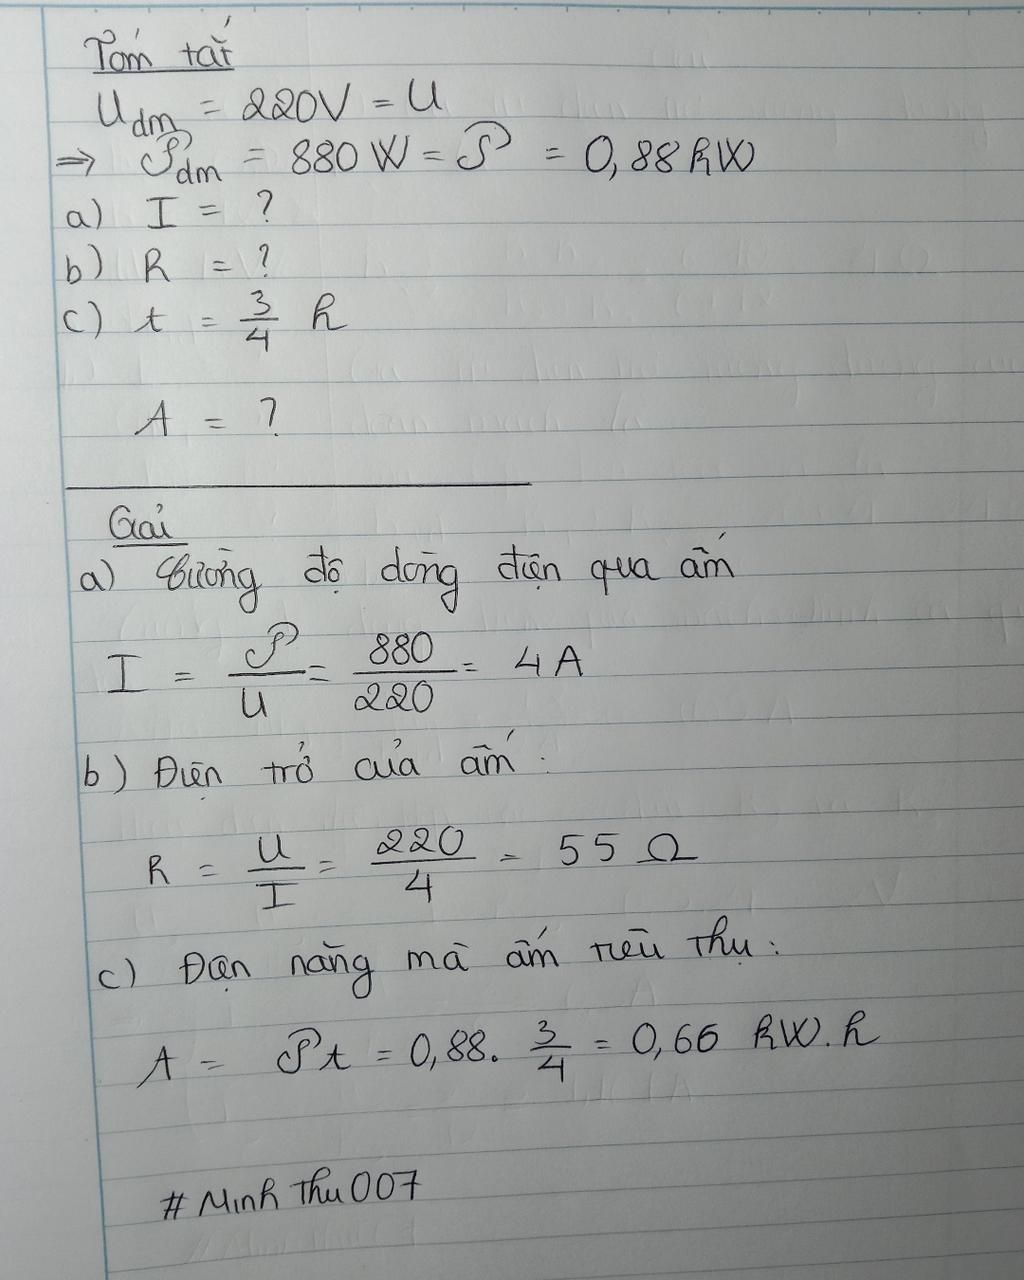 Tóm tắt
Uđm = 220V = U
=> Pđm = 880 W = P = 0,88 kW
a) I = ?
b) R = ?
c) t = 3/4 h
A = ?
Giải
a) Cường độ dòng điện qua ấm
I = P/U = 880/220 = 4A
b) Điện trở của ấm :
R = U/I = 220/4 = 55 Ω
c) Điện năng mà ấm tiêu thụ :
A = Pt = 0,88. 3/4 = 0,66 kW.h
# Minh Thu 007